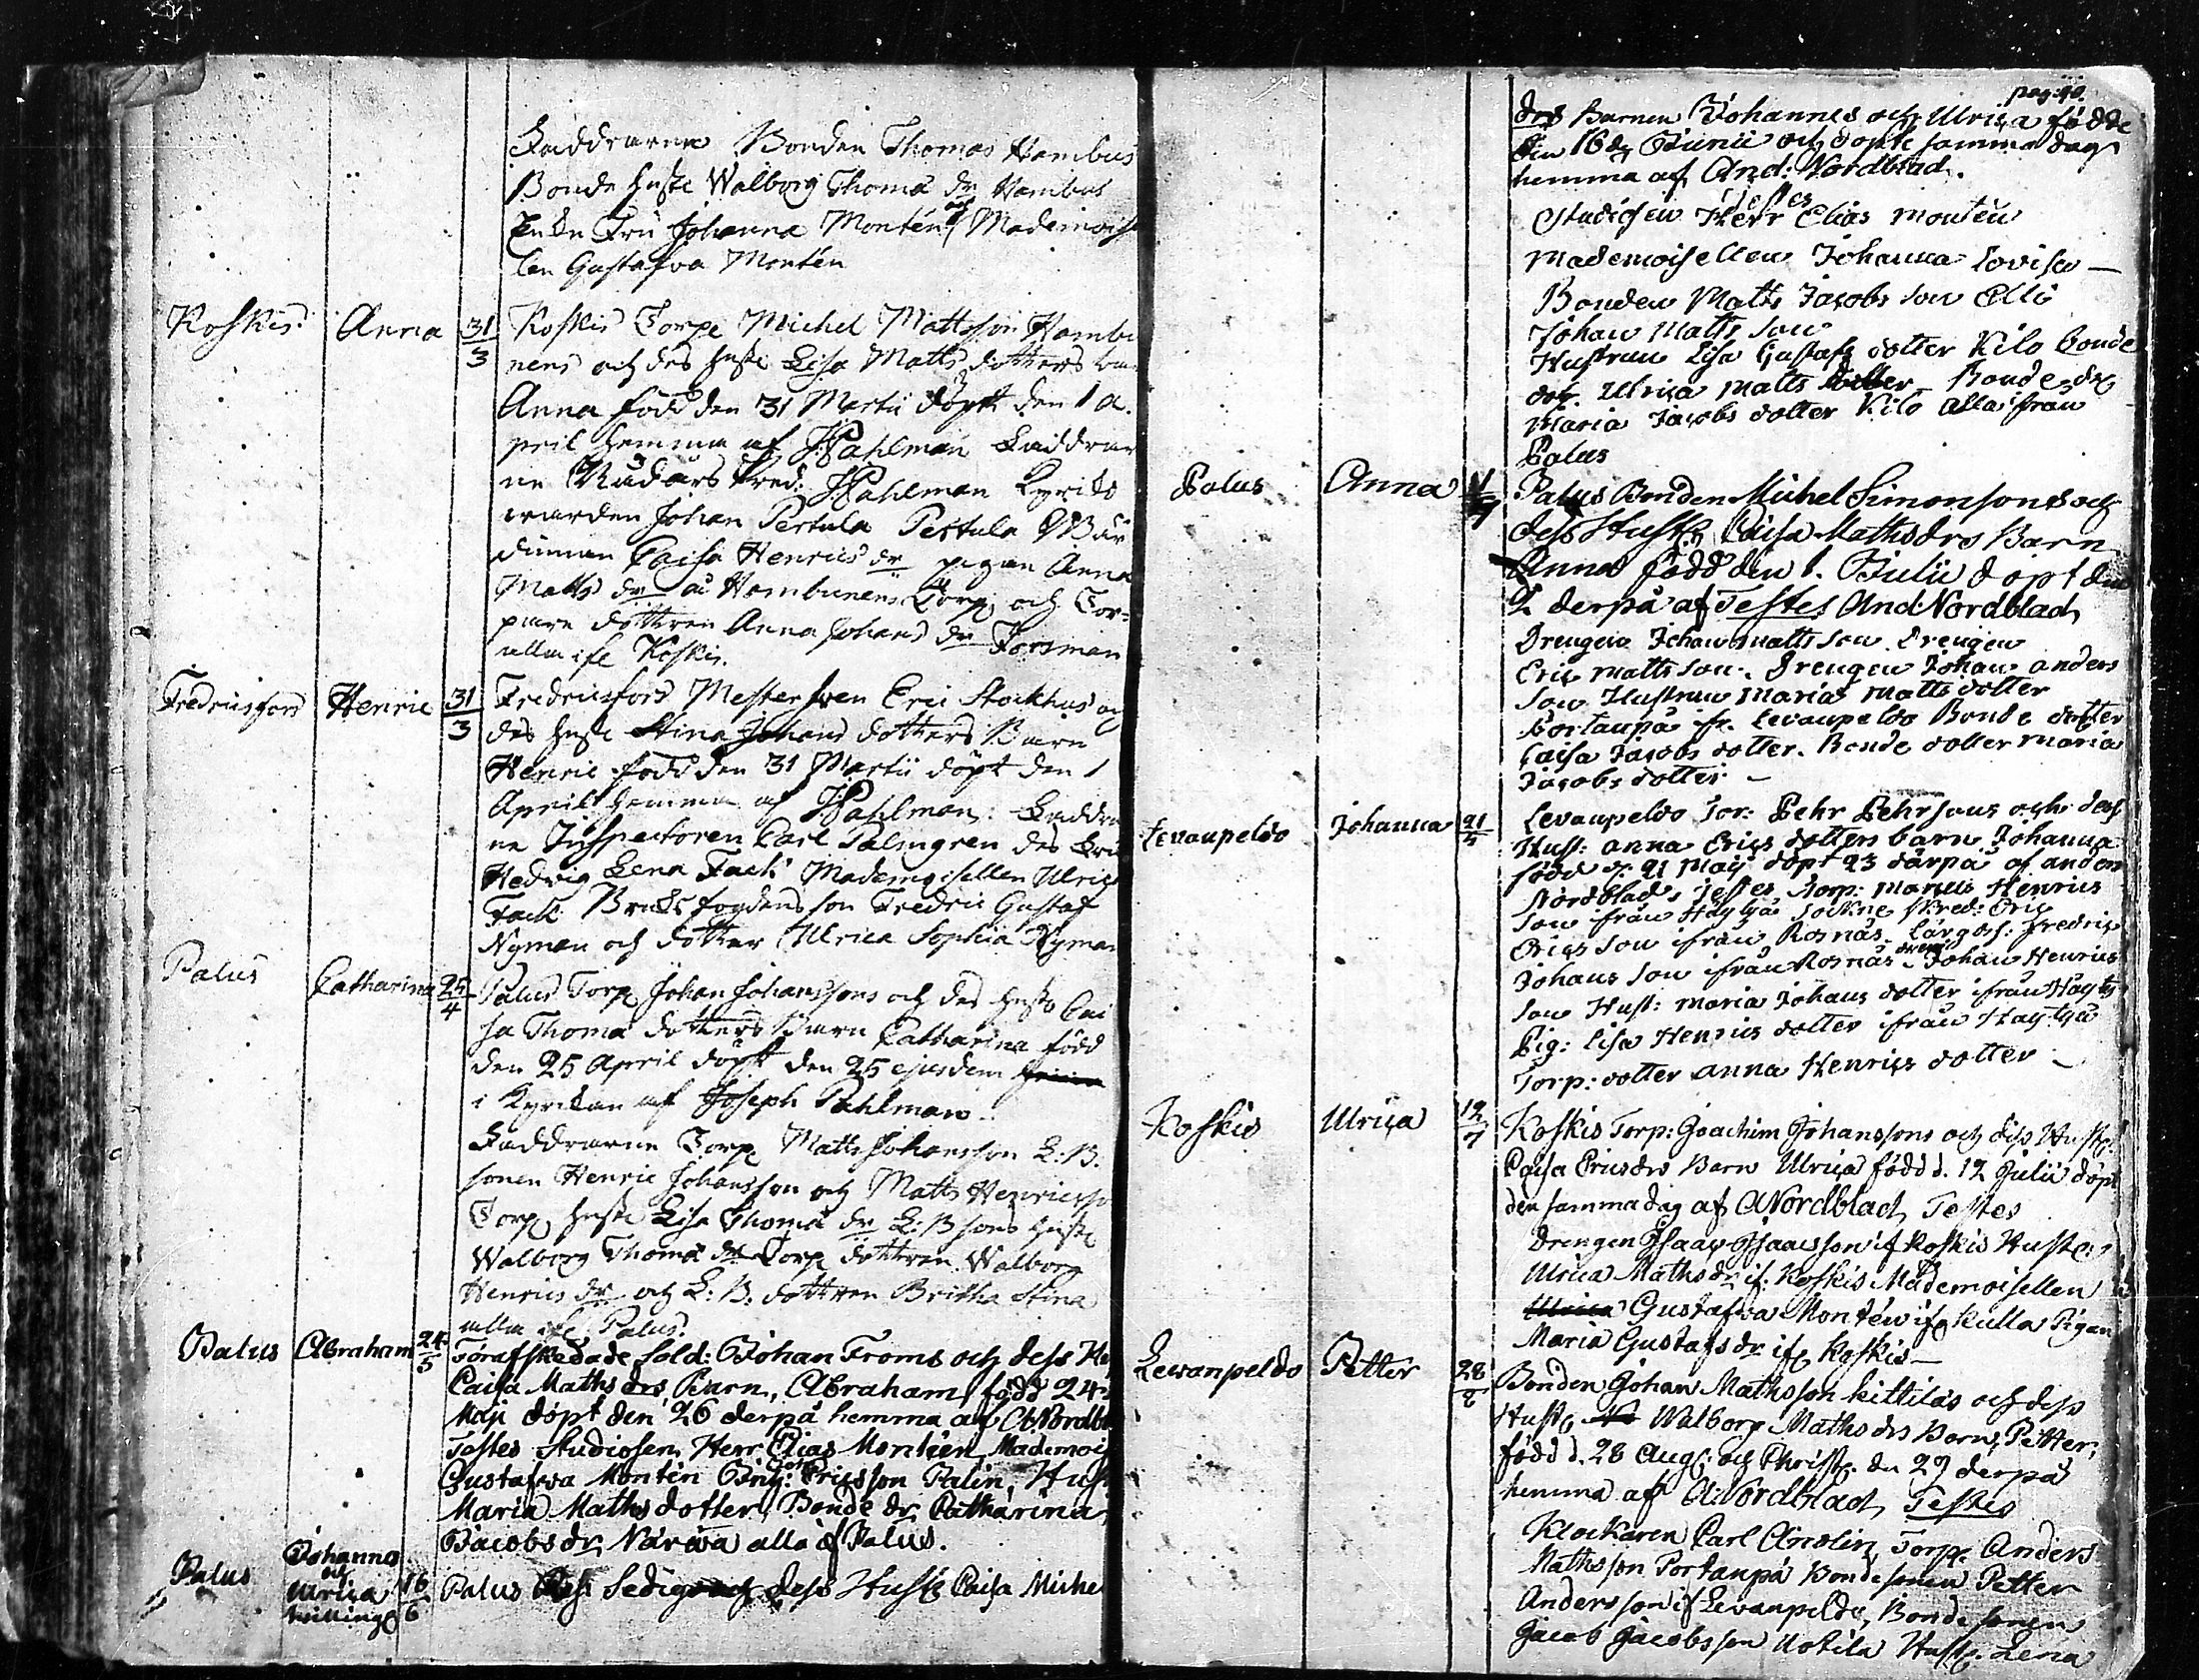 Faddrarne Bonden Thomas Hambus
Bonde Hust Walborg Thomæ dr Hambus
Enke Fru Johanna Montén och Mademoise
len Gustafva Montén
Koskis Anna 31/3 Koskis Torp Michel Mattsson Hambu
nens och des Hust Lisa Matts dotters
Anna född den 31 Martii döpt den 1 a.
pril hemma af J Pahlman Faddrar
ne Kred: J Pahlman Kyrko
warden Johan Pertula Pertula Wär
dinnan Caisa Henrics dr pigan Anna
Matts dr å Hambunens Torp och Tor-
pare dottren Anna Johans dr Forsman
alla if Koskis.
Fredricsfors Henric 31/3 Fredricsfors Mestersven Eric Stockhus och
des Hust Stina Johans dotters Barn
Henric född den 31 Martii döpt den 1
April hemma af J Pahlman: Faddra
ne Inspectoren Carl Palmgren des Fru
Hedvig Lena Fack Mademoisellen Ulrica
Fack Bruksfogdens son Fredric Gustaf
Nyman och dotter Ulrica Sophia Nyman
Palus Catharina 25/4 Palus Torp Johan Johanssons och des Hust Cai
sa Thomæ dotters Barn Catharina född
den 25 April döpt den 25 ejusdem
i Kyrckan af Joseph Pahlman.
Faddrarne Torp Matts Johansson L: B.
sonen Henric Johansson och Matts Henricsso
Torp Hust Lisa Thomæ dr L: B sons Hust
Walborg Thomæ dr Torp dottren Walborg
Henrics dr och L: B. dottren Britha Stina
alla if Palus.
Palus Abraham 24/5 Förafskedade Sold: Johan Froms och dess Hu
Caisa Maths drs Barn, Abraham, född 24
Maji döpt den 26 derpå hemma af A: Nordbl
Testes Studiosen Herr Elias Montén, Mademois
Gustafva Montén Ericsson Palin, Hust
Maria Maths dotter, Bonde dr Catharina
Jacobs dr Närwa alla if Palus.
Palus Johannes och Ulrica tvilling 16/6 Palus Sedigs och dess Hust Caisa Miche
pag: 90.
drs Barnen Johannes och Ulrica födde
den 16de Junii och döpte samma dag
hemma af And: Nordblad.
Testes
Studiosen Herr Elias Montén
Mademoisellen Johanna Lovisa –
Bonden Matts Jacobs son Elli
Johan Matts son
Hustrun Lisa Gustafs dotter Kilo Bonde
dotr. Ulrica Matts dotter – Bonde dr
Maria Jacobs dotter Kilo alla ifrån
Palus
Palus Anna 1/7 Palus Bonden Michel Simonsons och
dess Hust Caisa Mathsdrs Barn
Anna född den 1. Julii döpt den
2 derpå af Testes And: Nordblad
Drengen Johan Matts son Drengen
Eric Matts son. Drengen Johan Anders
son Hustrun Maria Matts dotter
Portanpä fr. Levanpeldo Bonde dotter
Caisa Jacobs dotter. Bonde dotter Maria
Jacobs dotter –
Levanpeldo Johanna 21/5 Levanpeldo Tor: Pehr Pehrsons och dess
Hust: Anna Erics dotters barn Johanna
född d: 21 May döpt 23 därpå af Anders
Nordblad, Testes Torp: Henrics
son ifrån Häylyä Sockne Skred: Eric
Erics son ifrån Kosnäs Fredric
Johans son ifrån Kosnäs dreng Johan Henrics
son Hust: Maria Johans dotter ifrån Häyly
Pig: Lisa Henrics dotter ifrån Häylyä
Torp: dotter Anna Henrics dotter –
Koskis Ulrica 12/7 Koskis Torp: Joachim Johanssons och dess Hust:
Caisa Ericsdrs Barn Ulrica född d. 12 Julii döpt
den samma dag af A Nordblad, Testes
Drengen Isaac Isaacsson if Koskis Hust:
Ulrica Maths dr if. Koskis Mademoisellen
Ulrica Gustafva Montén if Kulla Pigan
Maria Gustafs dr if Koskis –
Lewanpeldo Petter 28/8 Bonden Johan Mathsson Kittiläs och dess
Hust Walborg Maths drs Barn, Petter,
född d. 28 Aug. och Christ. den 29 derpå
hemma af A: Nordblad, Testes
Klockaren Carl Andlin, Torp. Anders
Mathsson Portanpä Bondesonen Petter
Andersson if Levanpeldo, Bonde sonen
Jacob Jacobsson Uotila Hust. Lena